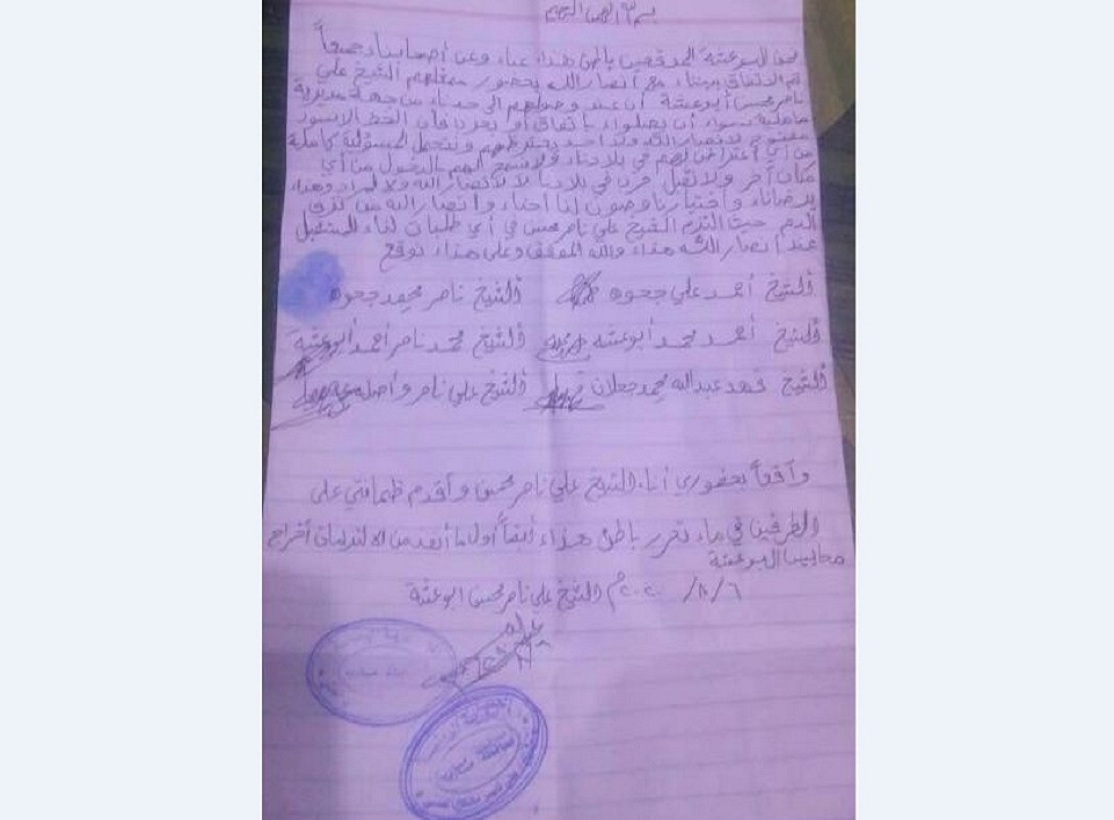 بسم الله الرحمن الرحيم
نحن البوعشة الموقعين باطن هذا عنا وعن أصحابنا جميعاً
تم الاتفاق بيننا مع أنصار الله بحضور ممثلهم الشيخ علي
ناصر محسن أبوعشة أن عند وصولهم إلى حدنا من جهة مديرية
ماهلية سواء أن يصلوا باتفاق أو بحرب فأن الخط الاسود
مفتوح لانصار الله ولا أحد يعترظهم ونتحمل المسؤلية كاملة
من أي اعتراض لهم في بلادنا ولا نسمح لهم بالدخول من أي
مكان آخر ولا نقبل حرب في بلادنا لا لأنصار الله ولا لمراد وهذا
برضانا وأختيارنا وصون لنا أحنا وأنصار الله من
الدم حيث التزم الشيخ علي ناصر محسن في أي طلبات لنا للمستقبل
عند أنصار الله هذا والله الموفق وعلى هذا نوقع
ألشيخ أحمد علي جعوه ألشيخ ناصر محمد جعوه
ألشيخ أحمد محمد أبوعشه ألشيخ محمد ناصر أحمد أبوعشه
ألشيخ فهد عبدالله محمد جعلان ألشيخ علي ناصر وأصله
وآقعاً بحضوري أنا الشيخ علي ناصر محسن وأقدم ظمانتي على
الطرفين في ما تحرر باطن هذا أيضاً أول ما أبعد من الالتزامات أخراج
محابيس البوعشة
٦/٨/٢٠٢٠م الشيخ علي ناصر محسن ابوعشة